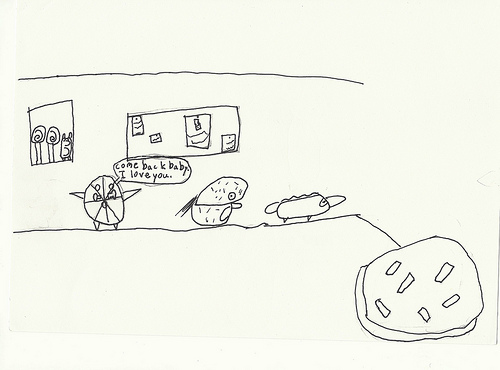 come back baby
I love you.